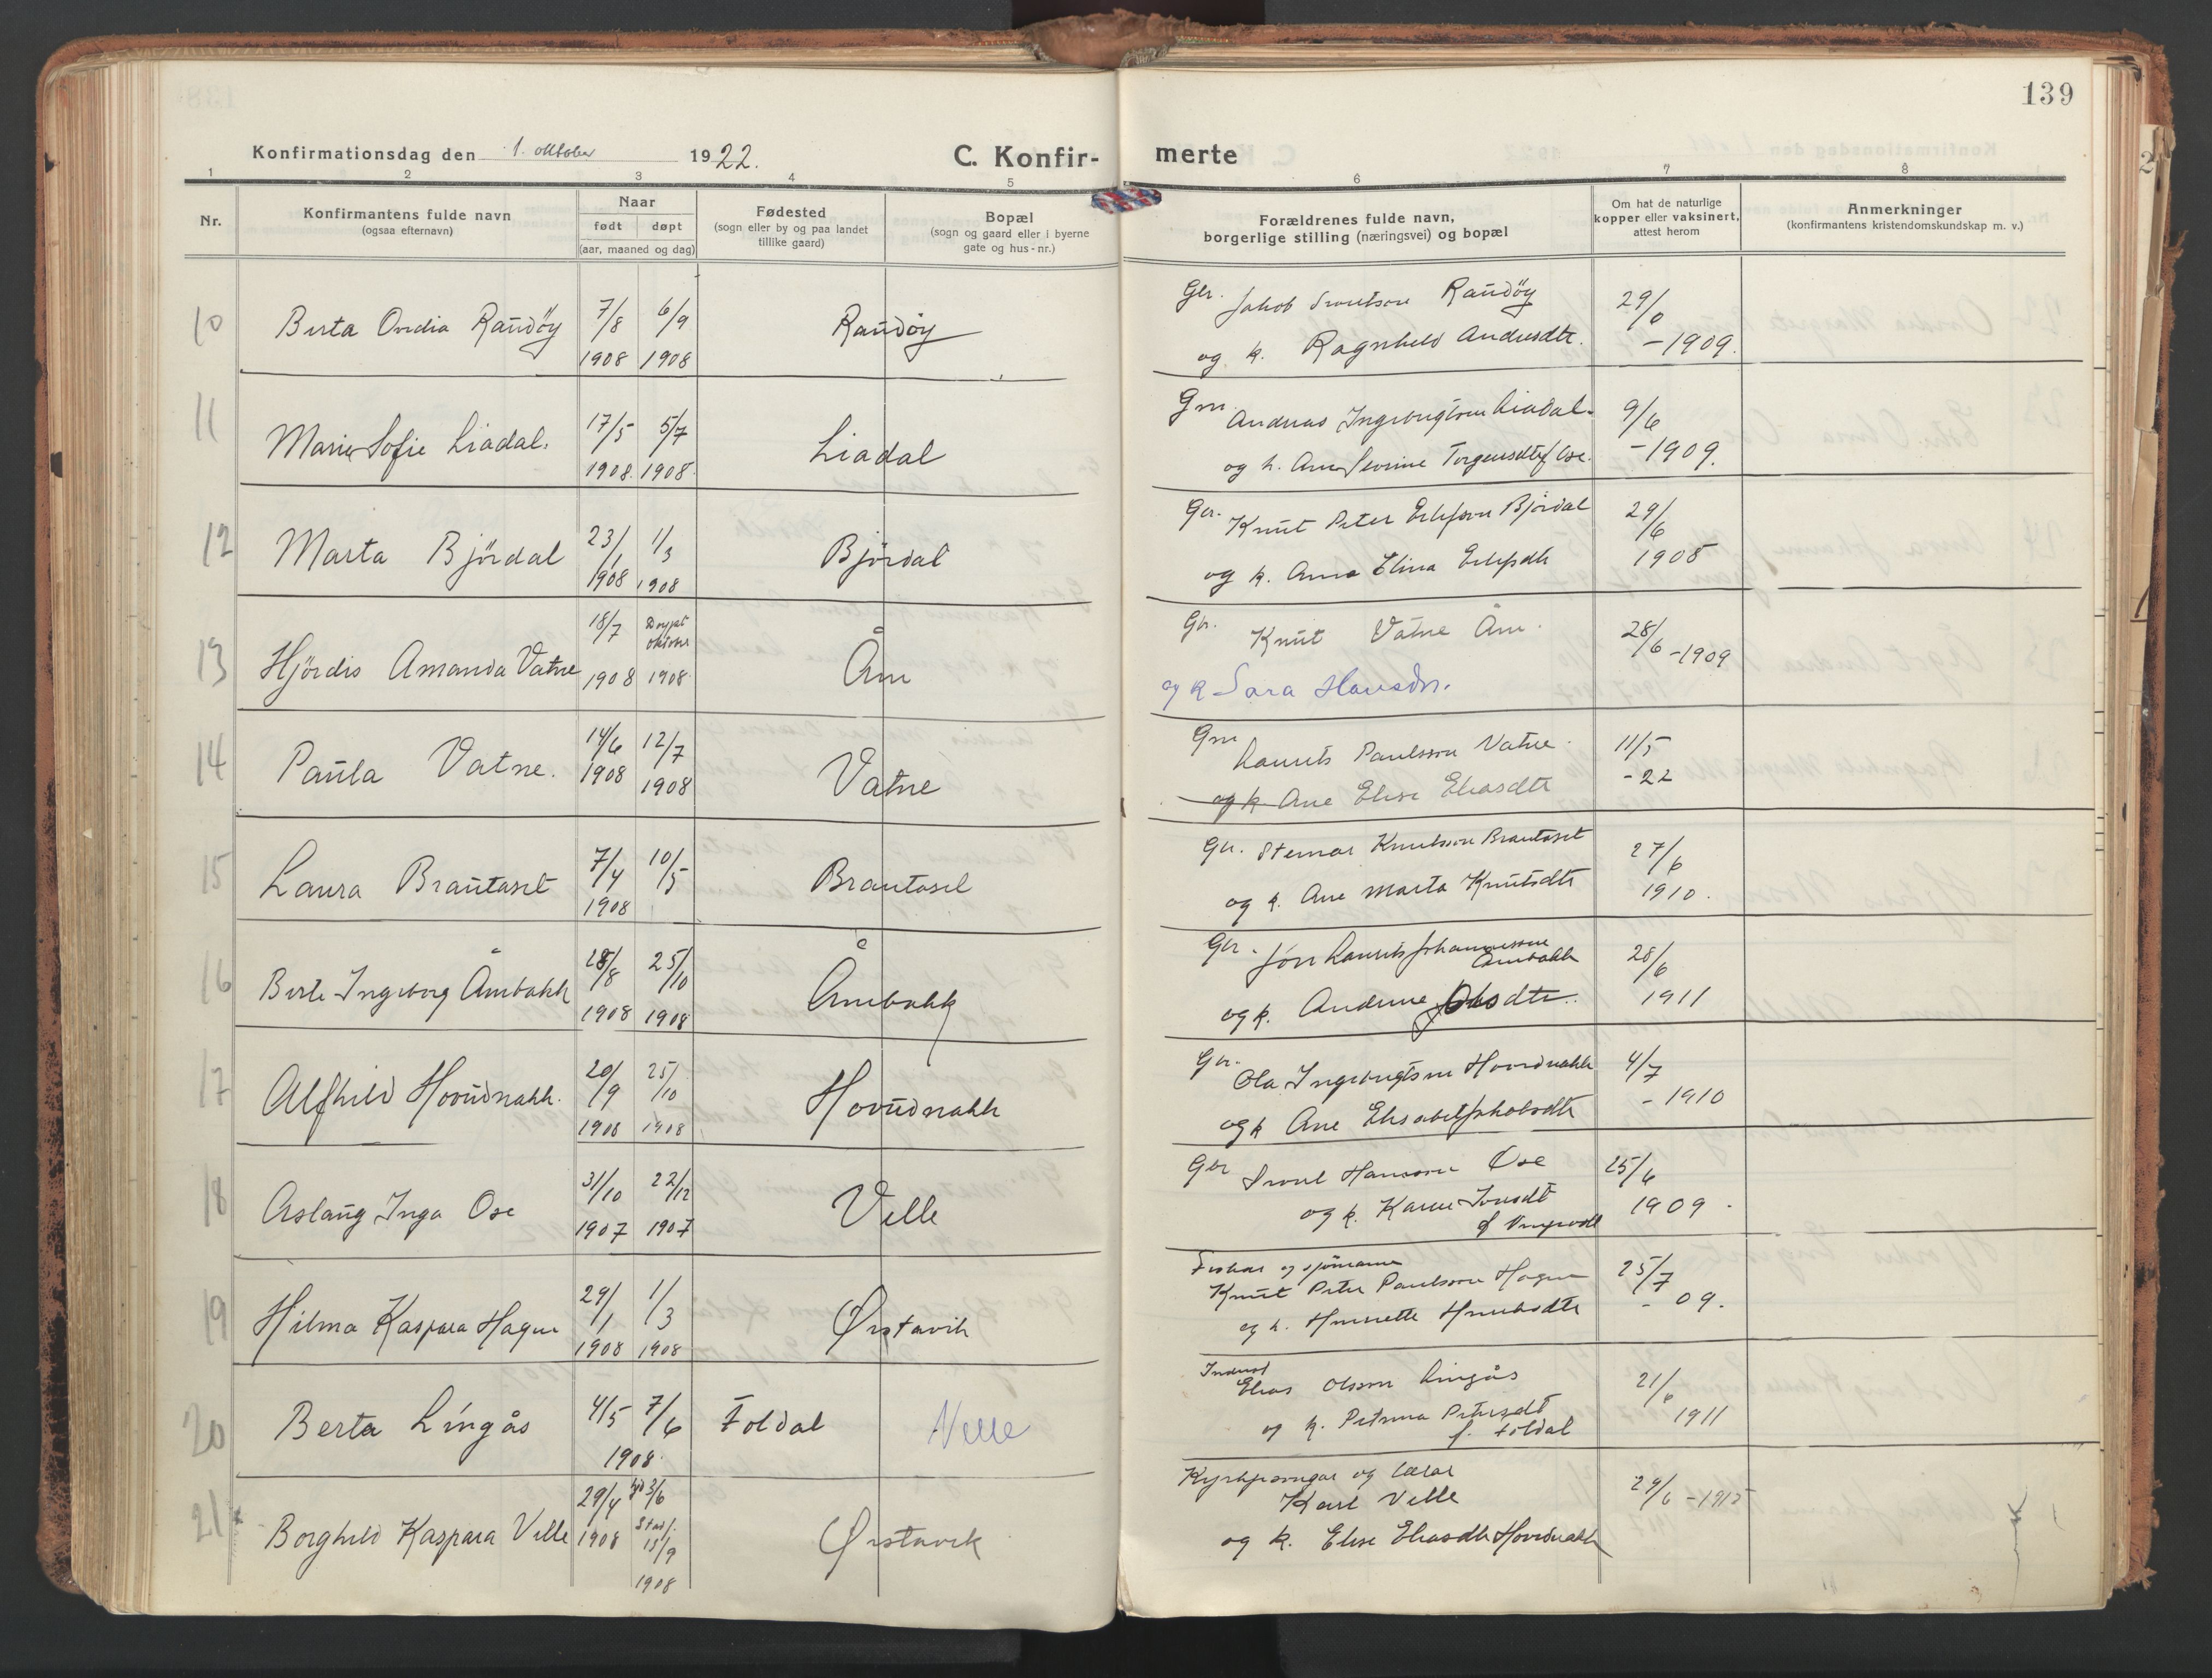 139
Konfirmationsdag den 1. oktober 1922.
C. Konfir-
merte
1 2 3 4 5 6 7 8
Nr.
Konfirmantens fulde navn
(ogsaa efternavn)
Naar
født døpt
(aar, maaned og dag)
Fødested
(sogn eller by og paa landet
tillike gaard)
Bopæl
(sogn og gaard eller i byerne
gate og hus-nr.)
Forældrenes fulde navn,
borgerlige stilling (næringsvei) og bopæl
Om hat de naturlige
kopper eller vaksinert,
attest herom
Anmerkninger
(konfirmantens kristendomskundskap m. v.)
10 Berta Ovidia Randöy 7/8 1908 6/9 1908 Randöy
Gbr. Jakob Randöy
og k. Ragnhild Andersdtr.
-1909.
11 Marie Sofie Liadal. 17/5 1908. 5/7 1908. Liadal
Gm. Andreas Ingebrigtson Liadal.
og k. Ane Severine Torgeirsdtr f Ose.
9/6 -1909.
12 Marta Björdal 23/1 1908 1/3 1908 Björdal
Gbr. Knut Peter Björdal
og k. Anna Elina
29/6 1908
13 Hjördis Amanda Vatne 18/7 1908 oktober 1908 Åm
Gbr. Knut Vatne Åm.
og k Sara Hansdtr.
28/6 -1909
14 Paula Vatne. 14/6 1908 12/7 1908 Vatne
Gm Laurits Paulsson Vatne.
og k Ane Elise Eliasdtr
11/5 -22
15 Laura Brautaset 7/4 1908 10/5 Brautaset
Gbr. Steinar Knutsson Brautaset
og k. Ane Marta Knutsdtr
27/6 1910.
16 Berte Ingeborg Åmbakk 28/8 1908 25/10 1908 Åmbakk
Gbr. Jon Laurits Johannesson
Åmbakk
og k.
28/6 1911
17 Alfhild Hovudnakk. 20/9 1908 25/10 1908 Hovudnakk
Gbr. Ola Ingebrigtson Hovdnakk
og k Ane Elisabet Jakobsdtr
4/7 -1910
18 Aslaug Inga Ose 31/10 1907 22/12 1907 Velle
Gbr Hansson Ose
og k.
25/6 1909.
19 Hilma Kaspara Hagen 29/1 1908 1/3 1908 Ørstavik
Fiskar og sjömann
Knut Peter Paulsson Hagen
og k.
25/7 - 09.
20 Berta Lingås 4/5 7/6 1908. Foldal Velle
Elias Olsson Lingås
og k. Petrina Petersdt
f. Foldal
21/6 1911
21 Borghild Kaspara Velle 29/4 1908 3/6 Stadf. 13/9 1908 Ørstavik
Kyrkjesongar og lærar
Karl Velle
og k. Elise Eliasdtr Hovdnakk
29/6